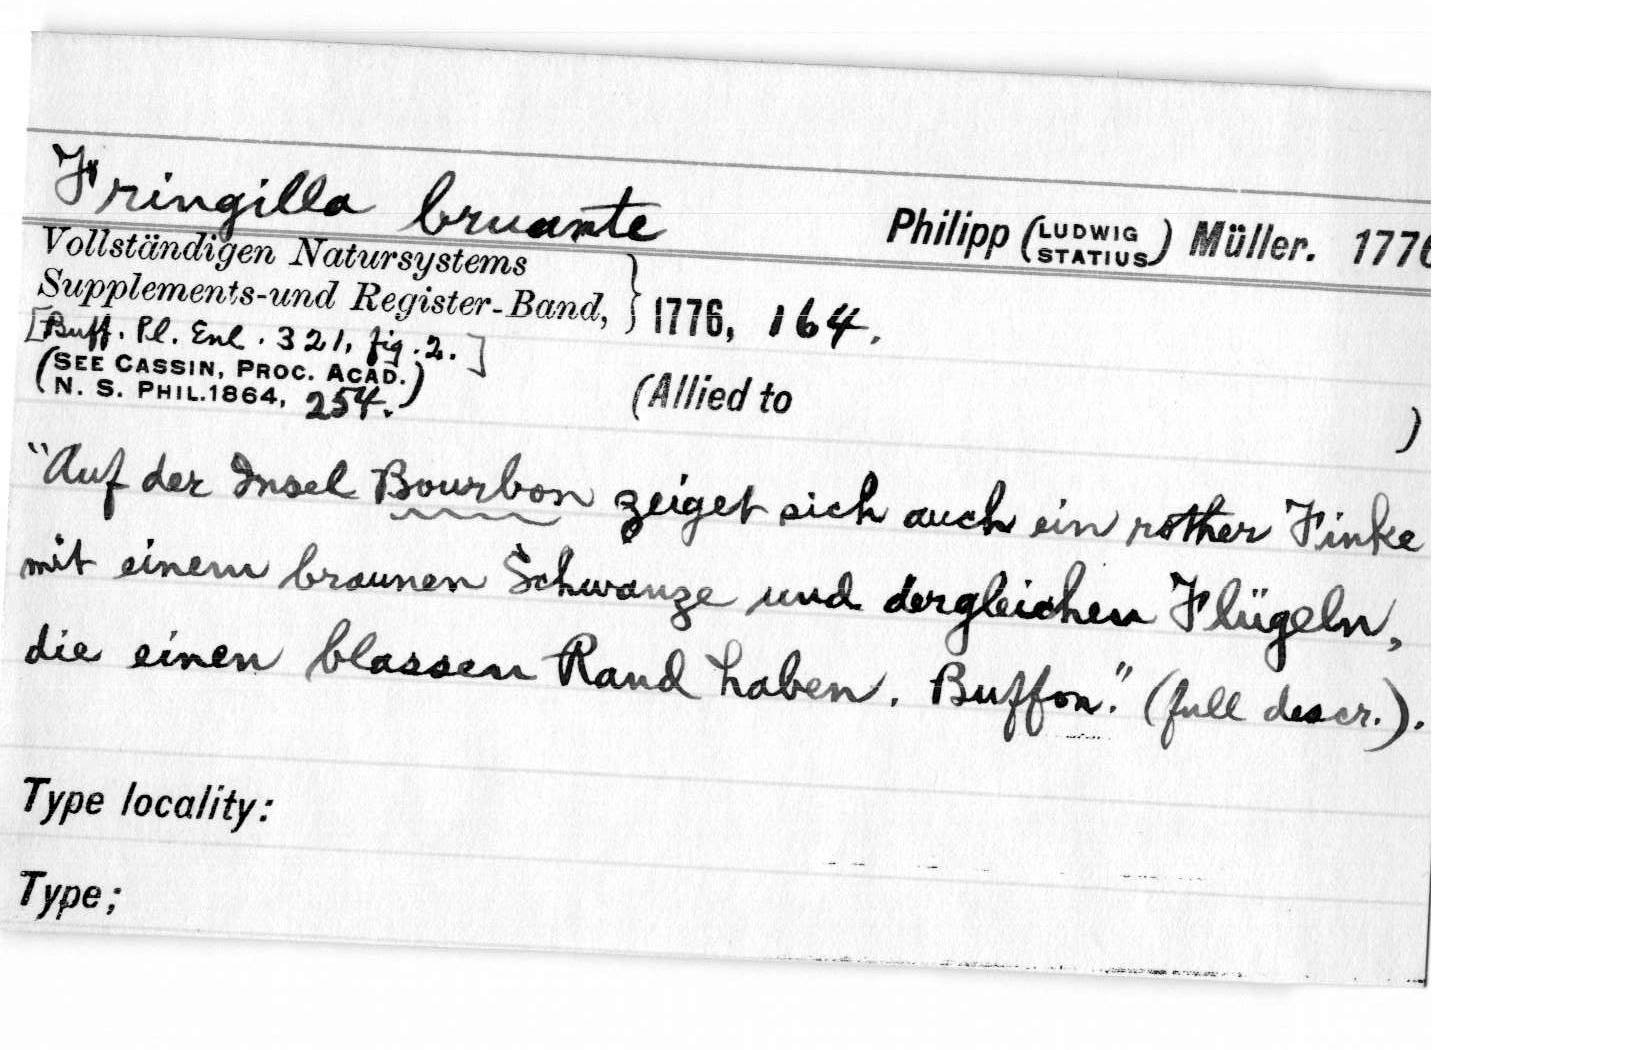 Fringilla bruante Philipp (LUDWIG STATIUS) Müller. 1776
Vollständigen Natursystems
Supplements-und Register-Band, } 1776, 164.
[Buff. Pl. Enl. 321, fig. 2.]
(SEE CASSIN, PROC. ACAD.
N. S. PHIL. 1864, 254.) (Allied to )
"Auf der Insel Bourbon zeiget sich auch ein rother Finke
mit einem braunen Schwanze und dergleichen Flügeln,
die einen blassen Rand haben. Buffon." (full descr.).
Type locality:
Type;